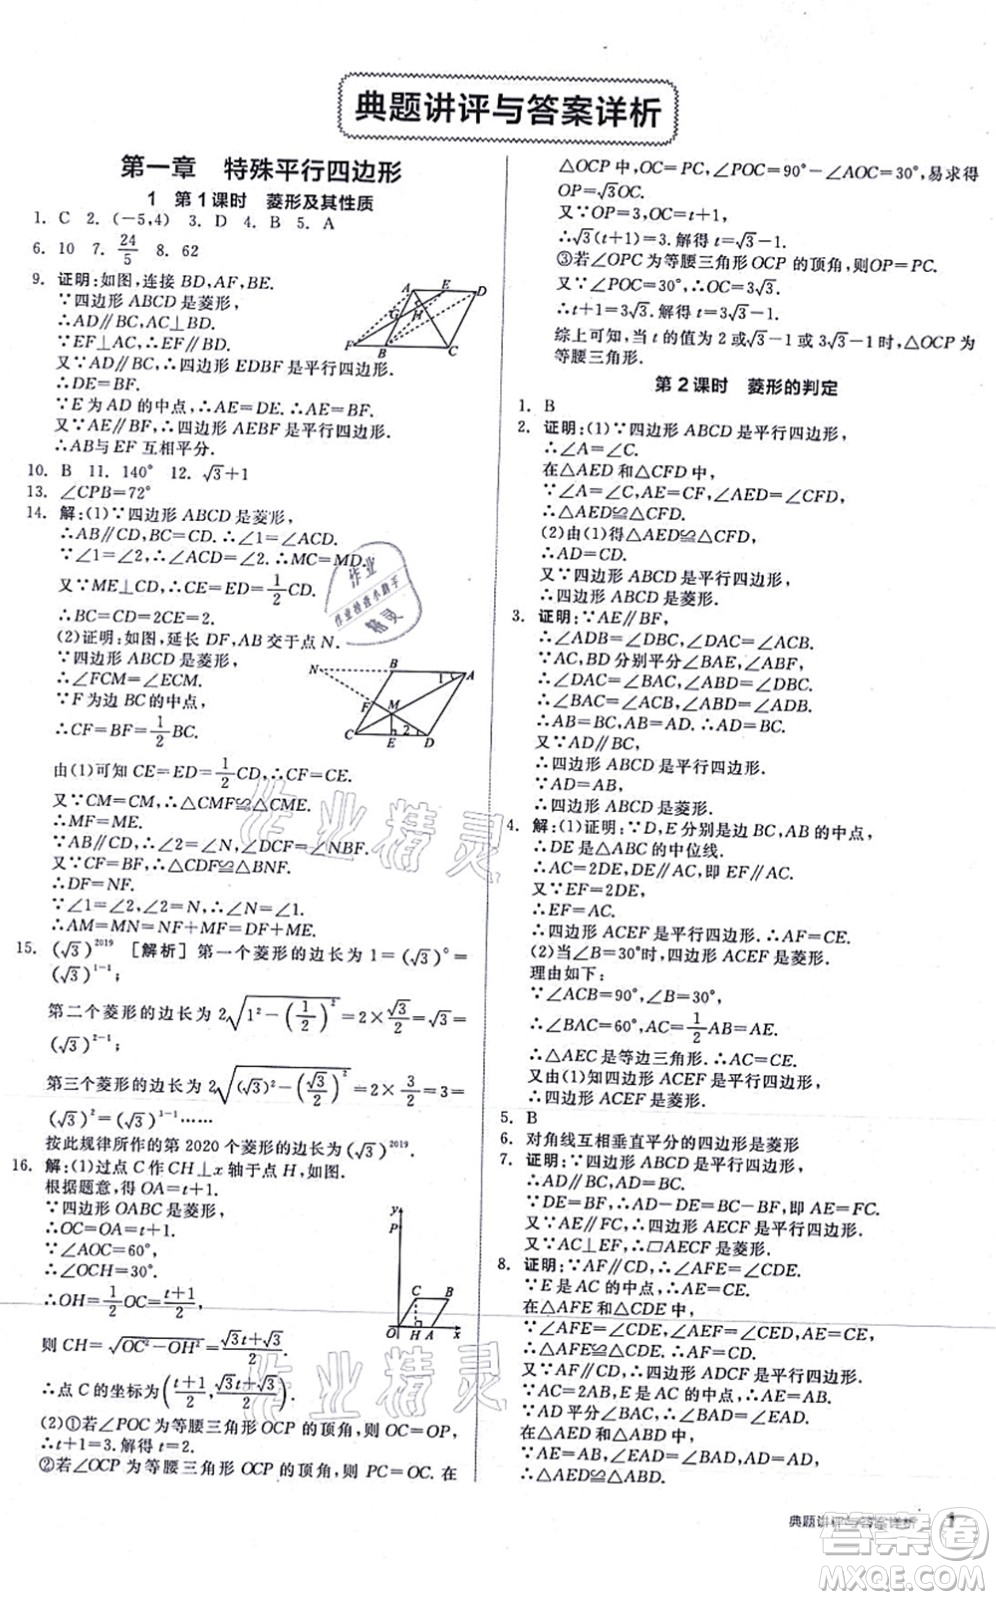 典题讲评与答案详析
第一章　特殊平行四边形
1　第1课时　菱形及其性质
1. C　2. (－5,4)　3. D　4. B　5. A
6. 10　7. 24/5　8. 62
9. 证明:如图,连接 BD,AF,BE.
∵四边形 ABCD 是菱形,
∴AD∥BC,AC⊥BD.
∵EF⊥AC,∴EF∥BD.
又∵AD∥BC,∴四边形 EDBF 是平行四边形.
∴DE=BF.
∵E 为 AD 的中点,∴AE=DE.∴AE=BF.
又∵AE∥BF,∴四边形 AEBF 是平行四边形.
∴AB与 EF 互相平分.
A E D G H F B C
10. B　11. 140°　12. √3+1
13. ∠CPB=72°
14. 解:(1)∵四边形 ABCD 是菱形,
∴AB∥CD.∴∠1=∠ACD.
∵∠1=∠2,∴∠ACD=∠2.∴MC=MD.
又∵ME⊥CD,∴CE=ED=1/2CD.
∴BC=CD=2CE=2.
(2)证明:如图,延长 DF,AB 交于点 N.
∵四边形 ABCD 是菱形,
∴∠FCM=∠ECM.
∵F为边 BC 的中点,
∴CF=BF=1/2BC.
N B 1 A F M C E 2 D
由(1)可知 CE=ED=1/2CD,∴CF=CE.
又∵CM=CM,∴△CMF≌△CME.
∴MF=ME.
又∵AB∥CD,∴△CDF≌△BNF.
∴DF=NF.
∵∠1=∠2,∠2=∠N,∴∠N=∠1.
∴AM=MN=NF+MF=DF+ME.
15. (√3)^2019　[解析]第一个菱形的边长为 1=(√3)^0=
(√3)^1−1;
第二个菱形的边长为 2√(1²−(1/2)²)=2×√3/2=√3=
(√3)^2−1;
第三个菱形的边长为 2√((√3)²−(√3/2)²)=2×3/2=3=
(√3)²=(√3)^3−1……
按此规律所作的第 2020 个菱形的边长为(√3)^2019.
16. 解:(1)过点 C 作 CH⊥x 轴于点 H,如图.
根据题意,得 OA=t+1.
∵四边形 OABC 是菱形,
∴OC=OA=t+1.
∵∠AOC=60°,
∴∠OCH=30°.
∴OH=1/2OC=(t+1)/2,
则 CH=√(OC²−OH²)=(√3t+√3)/2.
∴点 C 的坐标为((t+1)/2,(√3t+√3)/2).
y P C B O H A x
(2)①若∠POC 为等腰三角形 OCP 的顶角,则 OC=OP.
∴t+1=3.解得 t=2.
②若∠OCP 为等腰三角形 OCP 的顶角,则 PC=OC.在
△OCP 中,OC=PC,∠POC=90°−∠AOC=30°,易求得
OP=√3OC.
又∵OP=3,OC=t+1,
∴√3(t+1)=3.解得 t=√3−1.
③若∠OPC 为等腰三角形 OCP 的顶角,则OP=PC.
又∵∠POC=30°,∴OC=3√3.
∴t+1=3√3.解得 t=3√3−1.
综上可知,当 t 的值为 2 或√3−1 或 3√3−1时,△OCP 为
等腰三角形.
第2课时　菱形的判定
1. B
2. 证明:(1)∵四边形 ABCD 是平行四边形,
∴∠A=∠C.
在△AED 和△CFD 中,
∵∠A=∠C,AE=CF,∠AED=∠CFD,
∴△AED≌△CFD.
(2)由(1)得△AED≌△CFD,
∴AD=CD.
又∵四边形 ABCD 是平行四边形,
∴四边形 ABCD 是菱形.
3. 证明:∵AE∥BF,
∴∠ADB=∠DBC,∠DAC=∠BCA.
∵AC,BD 分别平分∠BAE,∠ABF,
∴∠DAC=∠BAC,∠ABD=∠DBC.
∴∠BAC=∠ACB,∠ABD=∠ADB.
∴AB=BC,AB=AD.∴AD=BC.
又∵AD∥BC,
∴四边形 ABCD 是平行四边形.
∵AD=AB,
∴四边形 ABCD 是菱形.
4. 解:(1)证明:∵D,E 分别是边 BC,AB 的中点,
∴DE 是△ABC 的中位线.
∴AC=2DE,DE∥AC,即 EF∥AC.
又∵EF=2DE,
∴EF=AC.
∴四边形 ACEF 是平行四边形.
(2)当∠B=30°时,四边形 ACEF 是菱形.
理由如下:
∵∠ACB=90°,∠B=30°,
∴∠BAC=60°,AC=1/2AB=AE.
∴△AEC 是等边三角形.∴AC=CE.
又由(1)知四边形 ACEF 是平行四边形,
∴四边形 ACEF 是菱形.
5. B
6. 对角线互相垂直平分的四边形是菱形
7. 证明:∵四边形 ABCD 是平行四边形,
∴AD∥BC,AD=BC.
∵DE=BF,∴AD−DE=BC−BF,即 AE=FC.
又∵AE∥FC,∴四边形 AECF 是平行四边形.
又∵AC⊥EF,∴□AECF 是菱形.
8. 证明:∵AF∥CD,∴∠AFE=∠CDE.
∵E 是 AC 的中点,∴AE=CE.
在△AFE 和△CDE 中,
∵∠AFE=∠CDE,∠AEF=∠CED,AE=CE,
∴△AFE≌△CDE.∴AF=CD.
又∵AF∥CD,∴四边形 ADCF 是平行四边形.
∵AC=2AB,E 为 AC 的中点,∴AE=AB.
∵AD 平分∠BAC,∴∠BAD=∠EAD.
在△AED 和△ABD 中,
∵AE=AB,∠EAD=∠BAD,AD=AD,
∴△AED≌△ABD.
作业
作业检查小助手
精灵
作业精灵
作业精灵
典题讲评与答案详析　1
答案圈
MXQE.COM